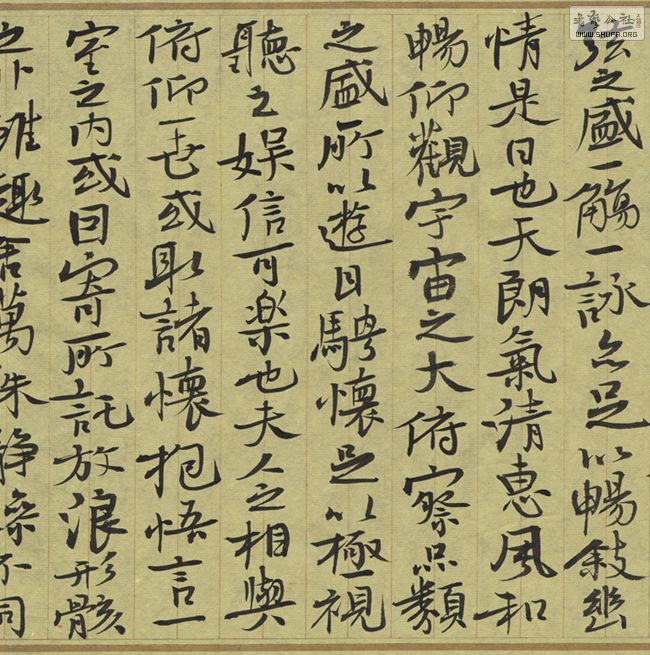 弦之盛一觴一詠亦足以暢敘幽
情是日也天朗氣清惠風和
暢仰觀宇宙之大俯察品類
之盛所以遊目騁懷足以極視
聽之娛信可楽也夫人之相與
俯仰一世或取諸懷抱悟言一
室之內或因寄所託放浪形骸
之外雖趣舍萬殊静躁不同
書法公社
WWW.SHUFA.ORG